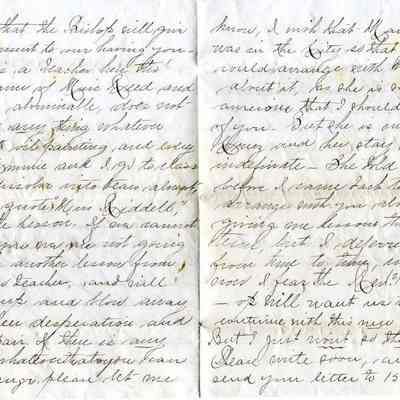 that the Bishop will give
ment to our having you
is a teacher here this
name of Miss Reed and
abominable, does not
any thing whatever
t oil painting, and every
time and I go to class
dissolve into tears almost,
quote Miss Riddell,"
the lesson. If you cannot
you are not going
another lesson from
teacher, and will
up and blow away
desperation, and
pair. If there is any
that you can
please let me
know, I wish that
was in the City so that
would arrange with
about it, as she is
anxious that I should
of you. But she is out
and her stay
indefinite – She told
before I came back to
arrange with you about
giving me lessons this
but I deferred
from time to time,
now I fear the
– st will want us
continue with this new
But I just wont so th
Please write soon,
send your letter to 15